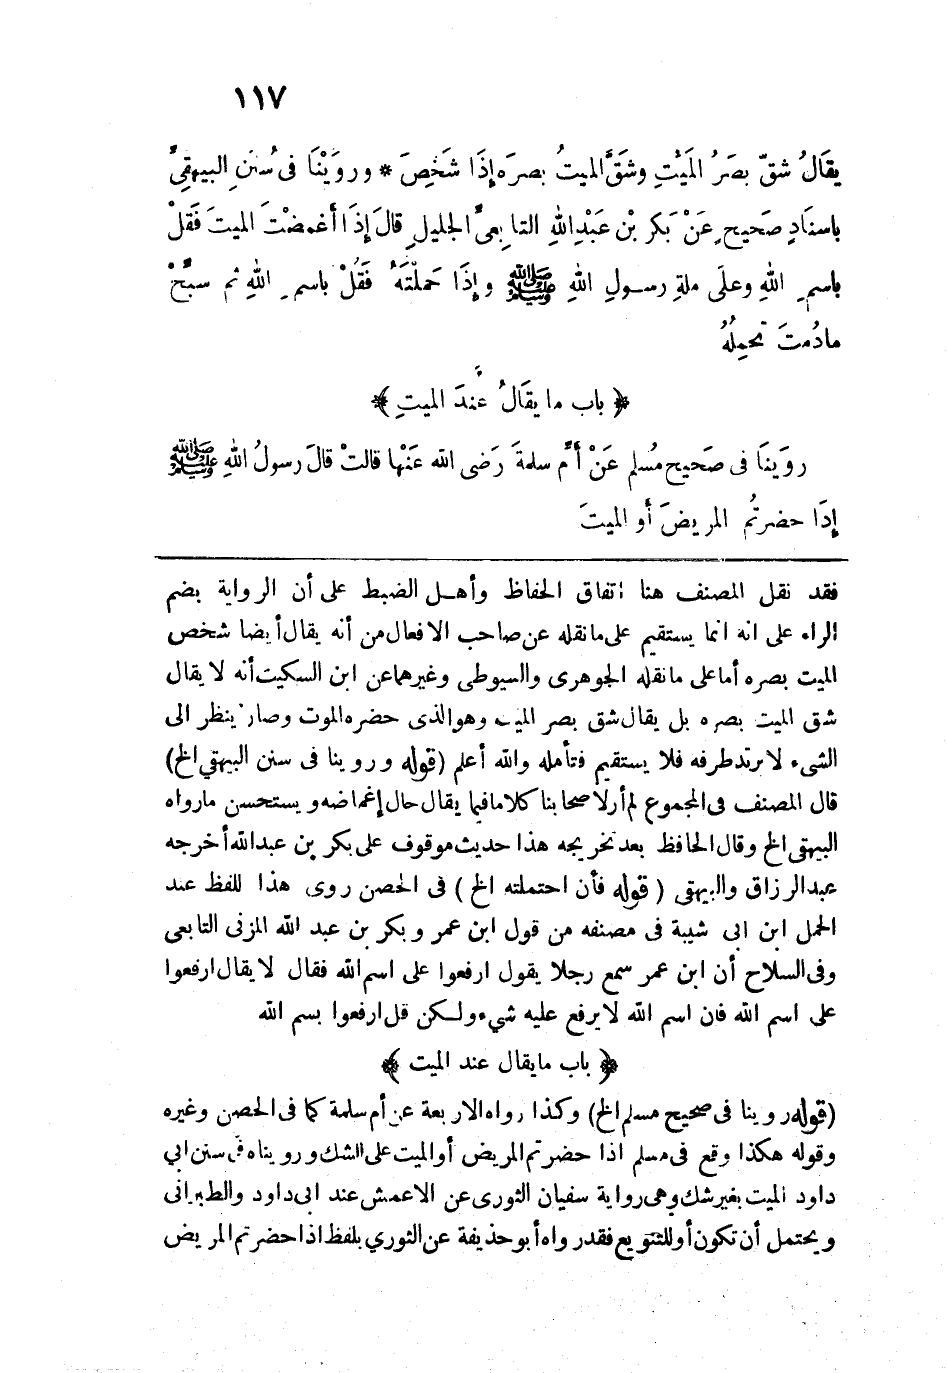 ١١٧
يقَالُ شقّ بصَرُ المَيْتِ وشَقَّ الميتُ بصرَه إذَا شَخَصَ * وروَيْنَا فى سُنن البيهقىِّ
باسنَادٍ صَحيحٍ عَنْ بَكر بْن عَبْدِ اللهِ التابعىِّ الجليلِ قالَ إذَا أغمضْتَ الميتَ فَقلْ
باسمِ اللهِ وعلَى ملةِ رسولِ اللهِ ﷺ وإذَا حَملْتَهُ فَقُلْ باسمِ اللهِ ثم سبِّحْ
مادُمتَ تحملُهُ
﴿ باب ما يقَالُ عندَ الميتِ ﴾
روَينَا فى صَحيح مُسلم عَنْ أمِّ سلمةَ رَضى الله عَنْها قالتْ قالَ رسولُ اللهِ ﷺ
إذَا حضرتُم المريضَ أو الميتَ
فقد نقل المصنف هنا اتفاق الحفاظ وأهل الضبط على أن الرواية بضم
الراء على انه انما يستقيم على مانقله عن صاحب الافعال من أنه يقال أيضا شخص
الميت بصره أما على مانقله الجوهرى والسيوطى وغيرهما عن ابن السكيت أنه لا يقال
شق الميت بصره بل يقال شق بصر الميت وهو الذى حضره الموت وصار ينظر الى
الشىء لا يرتد طرفه فلا يستقيم فتأمله والله أعلم (قوله وروينا فى سنن البيهقي الخ)
قال المصنف فى المجموع لم أر لاصحابنا كلاما فيما يقال حال إغماضه ويستحسن مارواه
البيهقى الخ وقال الحافظ بعد تخريجه هذا حديث موقوف على بكر بن عبد الله أخرجه
عبد الرزاق والبيهقى (قوله فأن احتملته الخ) فى الحصن روى هذا اللفظ عند
الحمل ابن ابى شيبة فى مصنفه من قول ابن عمر وبكر بن عبد الله المزنى التابعى
وفى السلاح أن ابن عمر سمع رجلا يقول ارفعوا على اسم الله فقال لا يقال ارفعوا
على اسم الله فان اسم الله لا يرفع عليه شىء ولكن قل ارفعوا بسم الله
﴿ باب مايقال عند الميت ﴾
(قوله روينا فى صحيح مسلم الخ) وكذا رواه الاربعة عن أم سلمة كما فى الحصن وغيره
وقوله هكذا وقع فى مسلم اذا حضرتم المريض أو الميت على الشك ورويناه فى سنن ابي
داود الميت بغير شك وهى رواية سفيان الثورى عن الاعمش عند ابى داود والطبرانى
ويحتمل أن تكون أو للتنويع فقد رواه أبو حذيفة عن الثوري بلفظ اذا حضرتم المريض